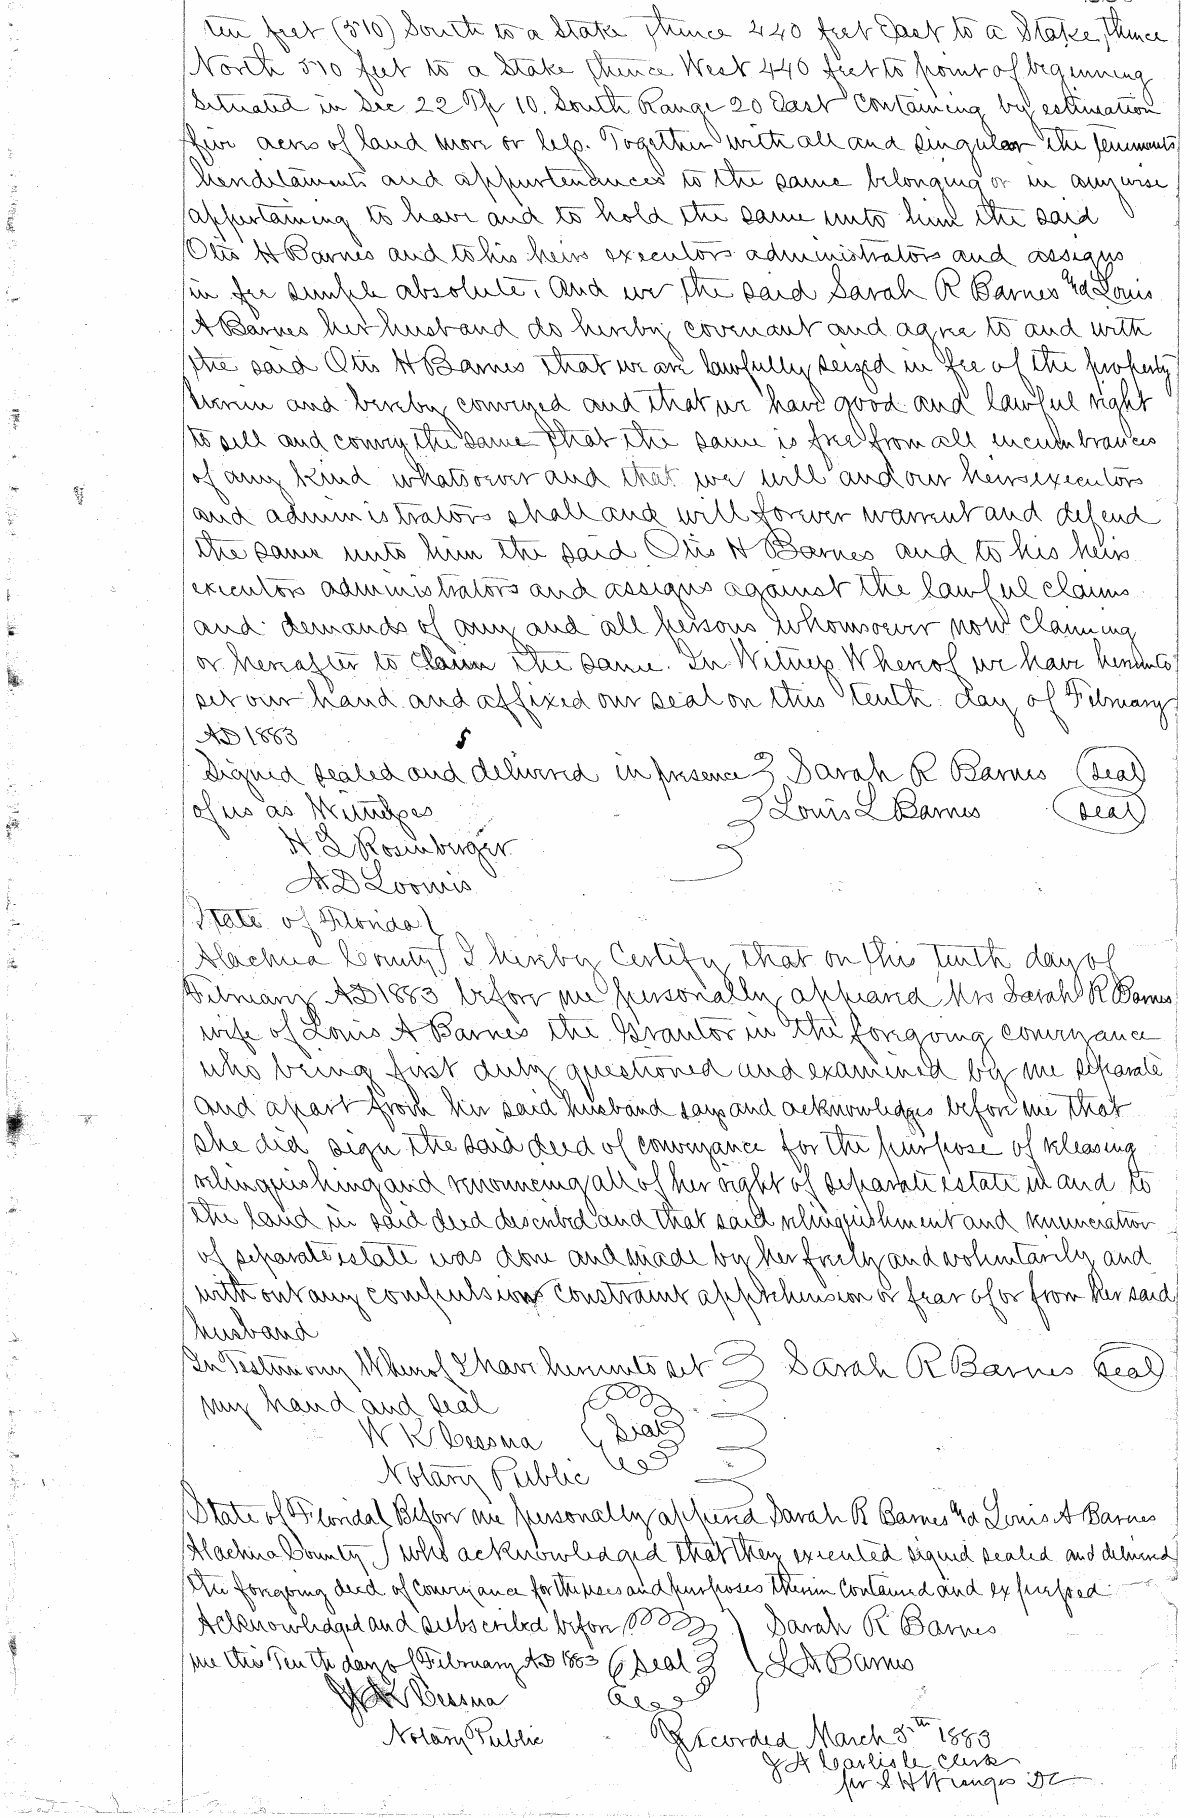 ten feet (510) South to a Stake, thence 440 feet East to a Stake, thence
North 510 feet to a Stake, thence West 440 feet to point of beginning
Situated in Sec 22 Tp 10. South Range 20 East Containing by estimation
five acres of land more or less. Together with all and singular the tenements
hereditaments and appurtenances to the same belonging or in anywise
appertaining to have and to hold the same unto him the said
Otis H Barnes and to his heirs executors administrators and assigns
in fee simple absolute. And we the said Sarah R Barnes and Louis
A Barnes her husband do hereby covenant and agree to and with
the said Otis H Barnes that we are lawfully seized in fee of the property
herein and hereby conveyed and that we have good and lawful right
to sell and convey the same that the same is free from all incumbrances
of any kind whatsoever and that we will and our heirs executors
and administrators shall and will forever warrent and defend
the same unto him the said Otis H Barnes and to his heirs
executors administrators and assigns against the lawful claims
and demands of any and all persons whomsoever now claiming
or hereafter to claim the same. In Witness Whereof we have hereunto
set our hand and affixed our seal on this tenth day of February
AD 1883
Signed sealed and delivered in presence Sarah R Barnes (seal)
of us as Witnesses Louis L Barnes (seal)
H L Rosenberger
A D Loomis
State of Florida
Alachua County I hereby Certify that on this tenth day of
February AD 1883 before me personally appeared Mrs Sarah R Barnes
wife of Louis A Barnes the Grantor in the foregoing conveyance
who being first duly questioned and examined by me separate
and apart from her said husband says and acknowledges before me that
she did sign the said deed of conveyance for the purpose of releasing
relinquishing and renouncing all of her right of separate estate in and to
the land in said deed described and that said relinquishment and renunciation
of separate estate was done and made by her freely and voluntarily and
without any compulsion constraint apprehension or fear of or from her said
husband
In Testimony Whereof I have hereunto set Sarah R Barnes (seal)
my hand and seal
W K Cessna (Seal)
Notary Public
State of Florida Before me personally appeared Sarah R Barnes and Louis A Barnes
Alachua County who acknowledged that they executed signed sealed and delivered
the foregoing deed of conveyance for the uses and purposes therein contained and expressed
Acknowledged and subscribed before Sarah R Barnes
me this Tenth day of February AD 1883 (Seal) L A Barnes
W K Cessna
Notary Public Recorded March 5th 1883
J A Carlisle Clerk
per S H Wienges DC